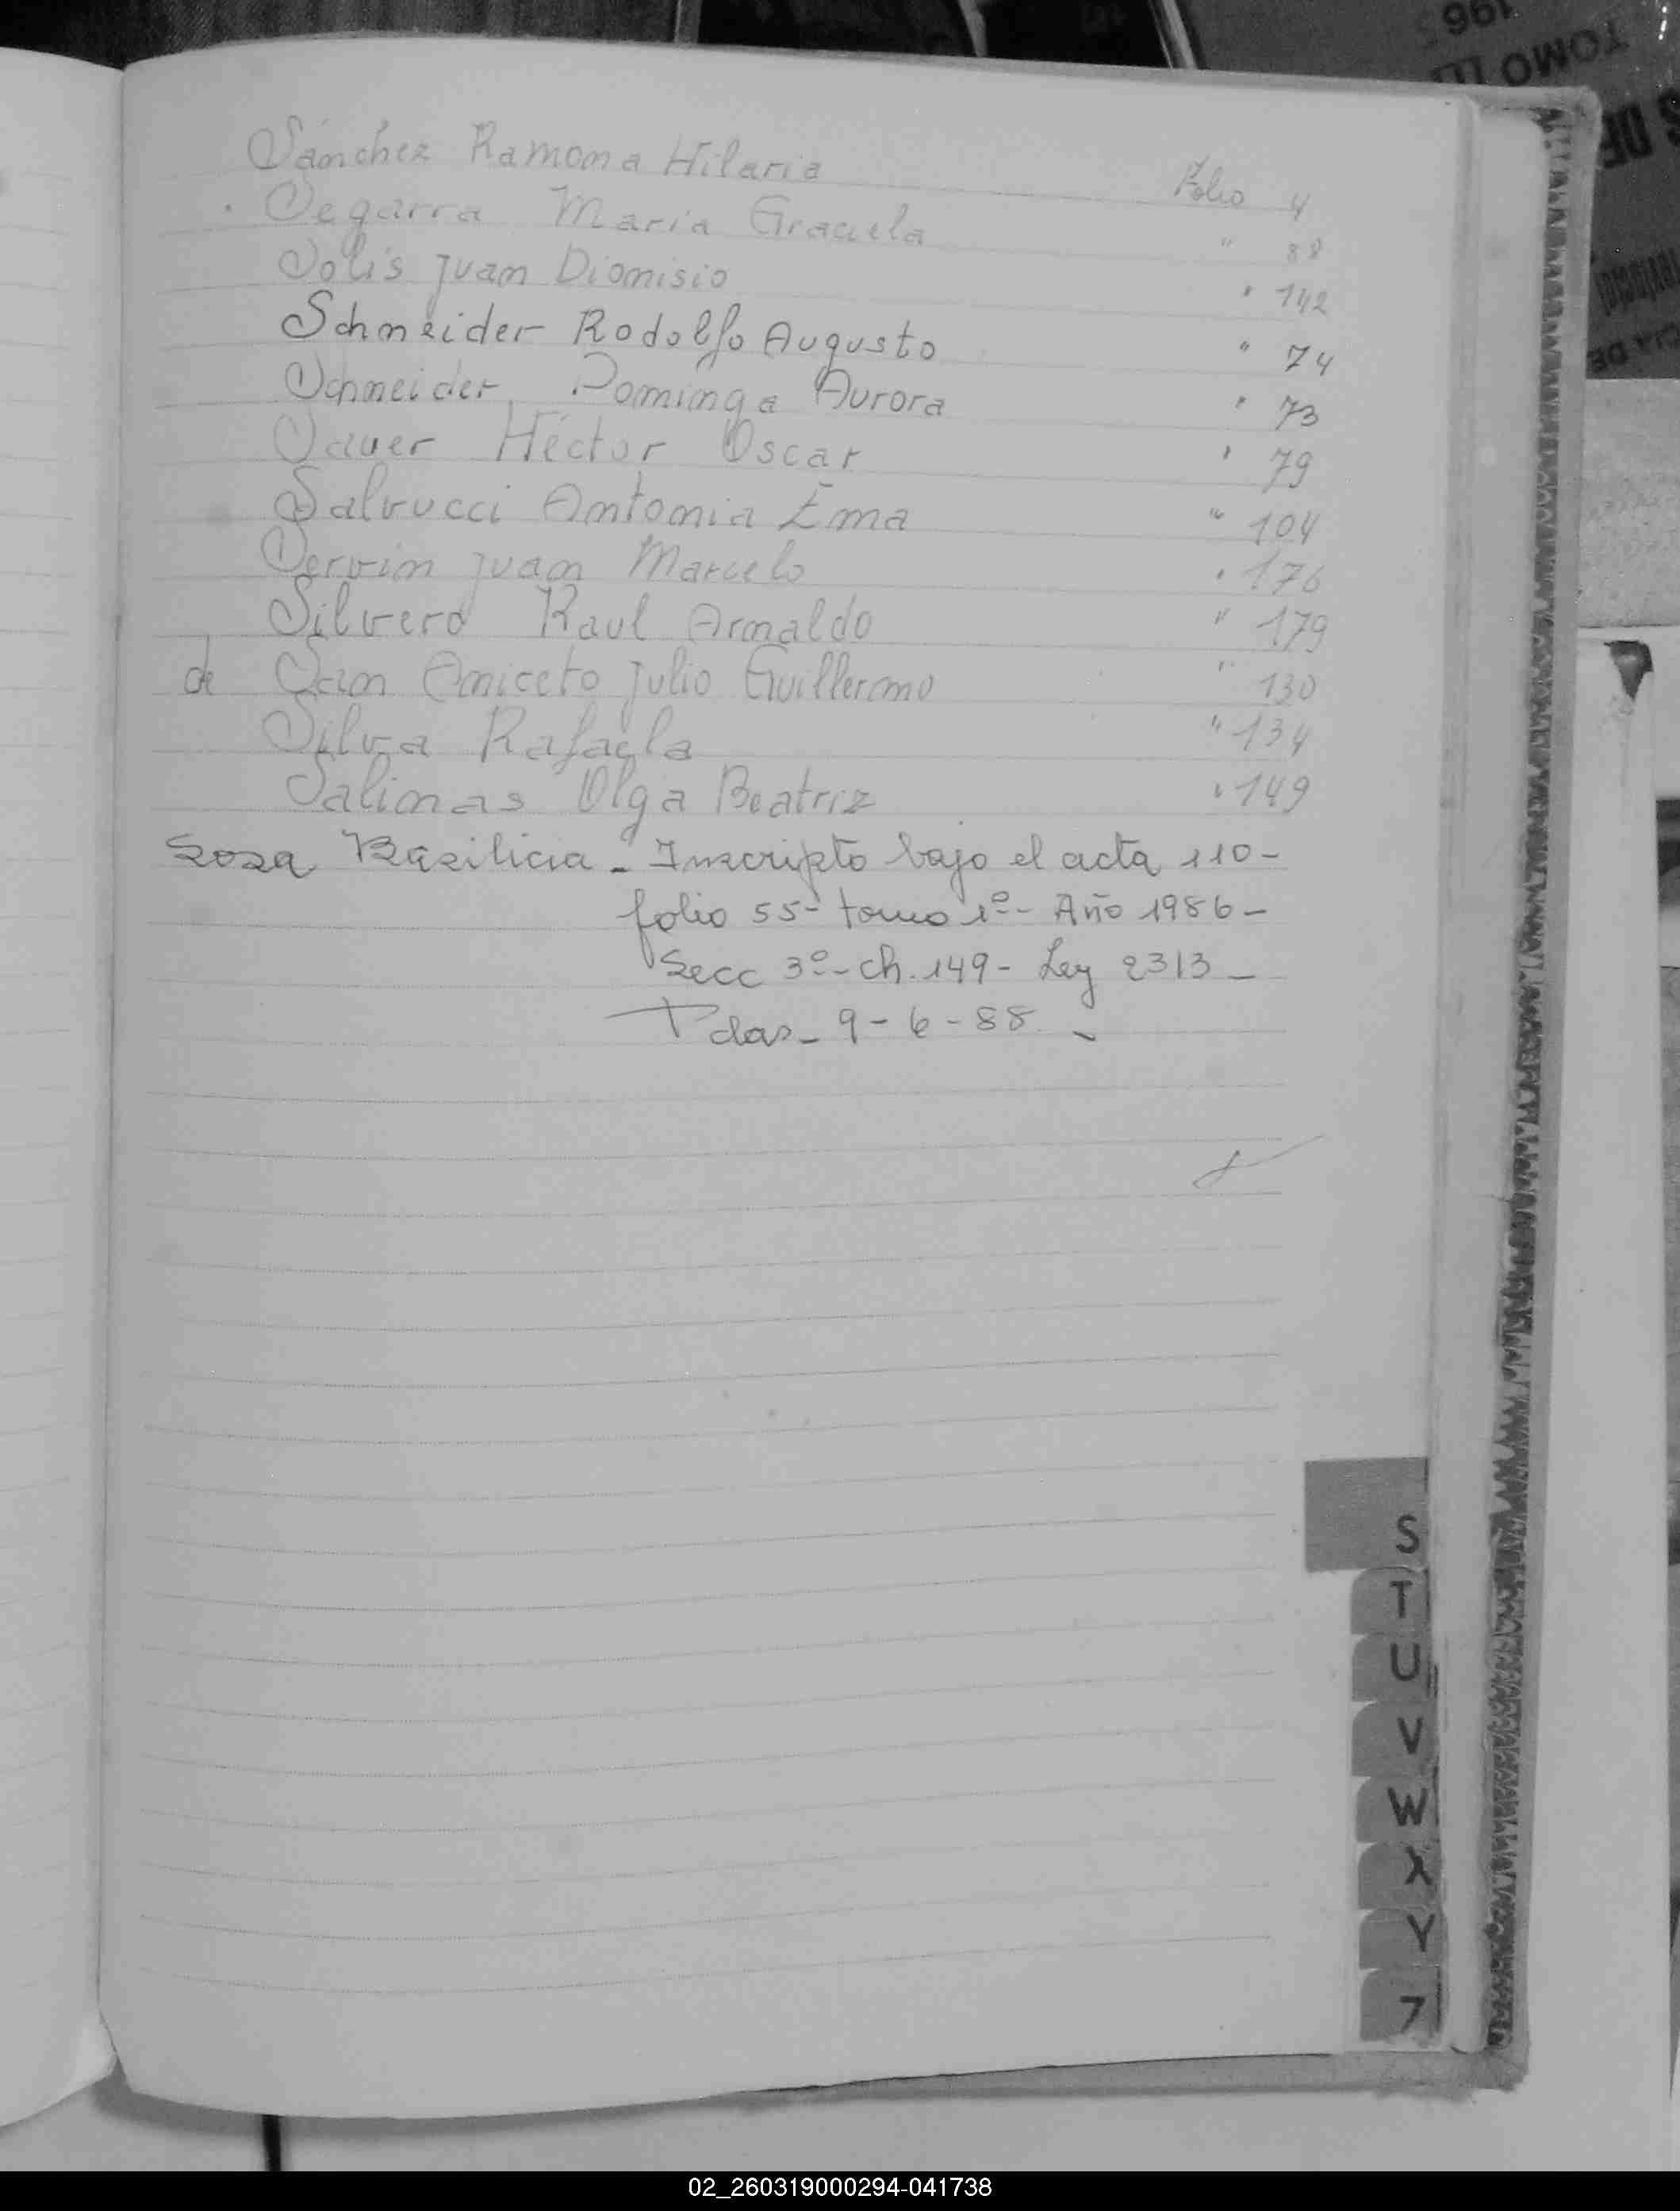 Sánchez Ramona Hilaria Folio 4
Segarra Maria Graciela " 88
Solis Juan Dionisio " 142
Schneider Rodolfo Augusto " 74
Schneider Dominga Aurora " 73
Sauer Héctor Oscar " 79
Salvucci Antonia Ema " 104
Servin Juan Marcelo " 176
Silvero Raul Arnaldo " 179
de San Aniceto Julio Guillermo " 130
Silva Rafaela " 134
Salinas Olga Beatriz " 149
Sosa Basilicia - Inscripto bajo el acta 110-
folio 55- tomo 1º- Año 1986-
Secc 3º- Ch. 149- Ley 2313-
Pdas- 9-6-88-
S
T
U
V
W
X
Y
Z
196
TOMO III
DE
02_260319000294-041738